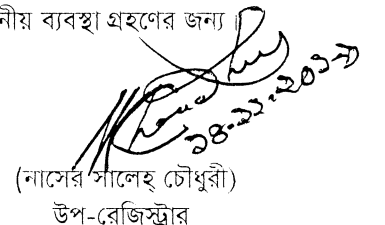 নীয় ব্যবস্থা গ্রহণের জন্য।
(নাসের সালেহ্ চৌধুরী)
উপ-রেজিস্ট্রার